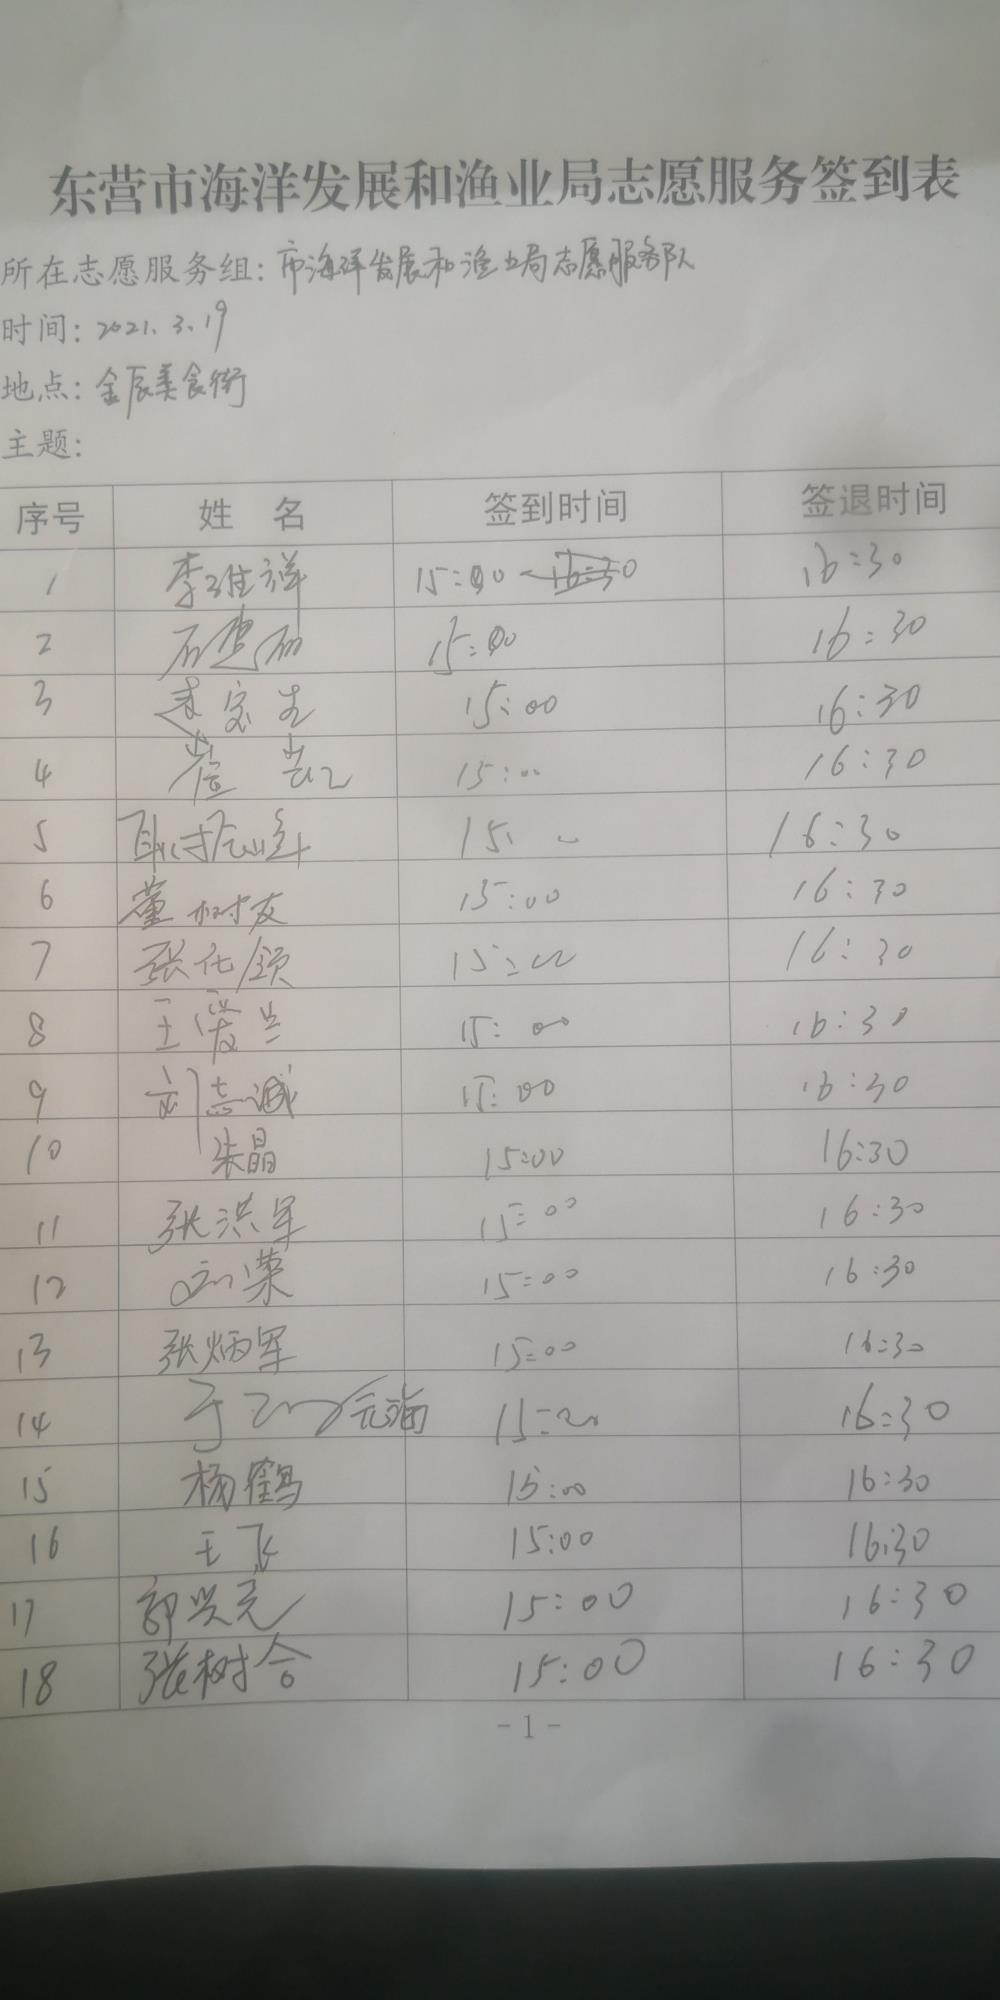 东营市海洋发展和渔业局志愿服务签到表
所在志愿服务组: 市海洋发展和渔业局志愿服务队
时间: 2021.3.19
地点: 金辰美食街
主题:
序号 姓名 签到时间 签退时间
1 李维祥 15:00 16:30
2 15:00 16:30
3 15:00 16:30
4 15:00 16:30
5 16:30
6 董树友 15:00 16:30
7 15:00 16:30
8 王爱兰 15:00 16:30
9 刘志诚 15:00 16:30
10 朱晶 15:00 16:30
11 张洪军 15:00 16:30
12 刘荣 15:00 16:30
13 张炳军 15:00 16:30
14 于 16:30
15 杨鹤 15:00 16:30
16 王飞 15:00 16:30
17 郭兴亮 15:00 16:30
18 张树合 15:00 16:30
-1-